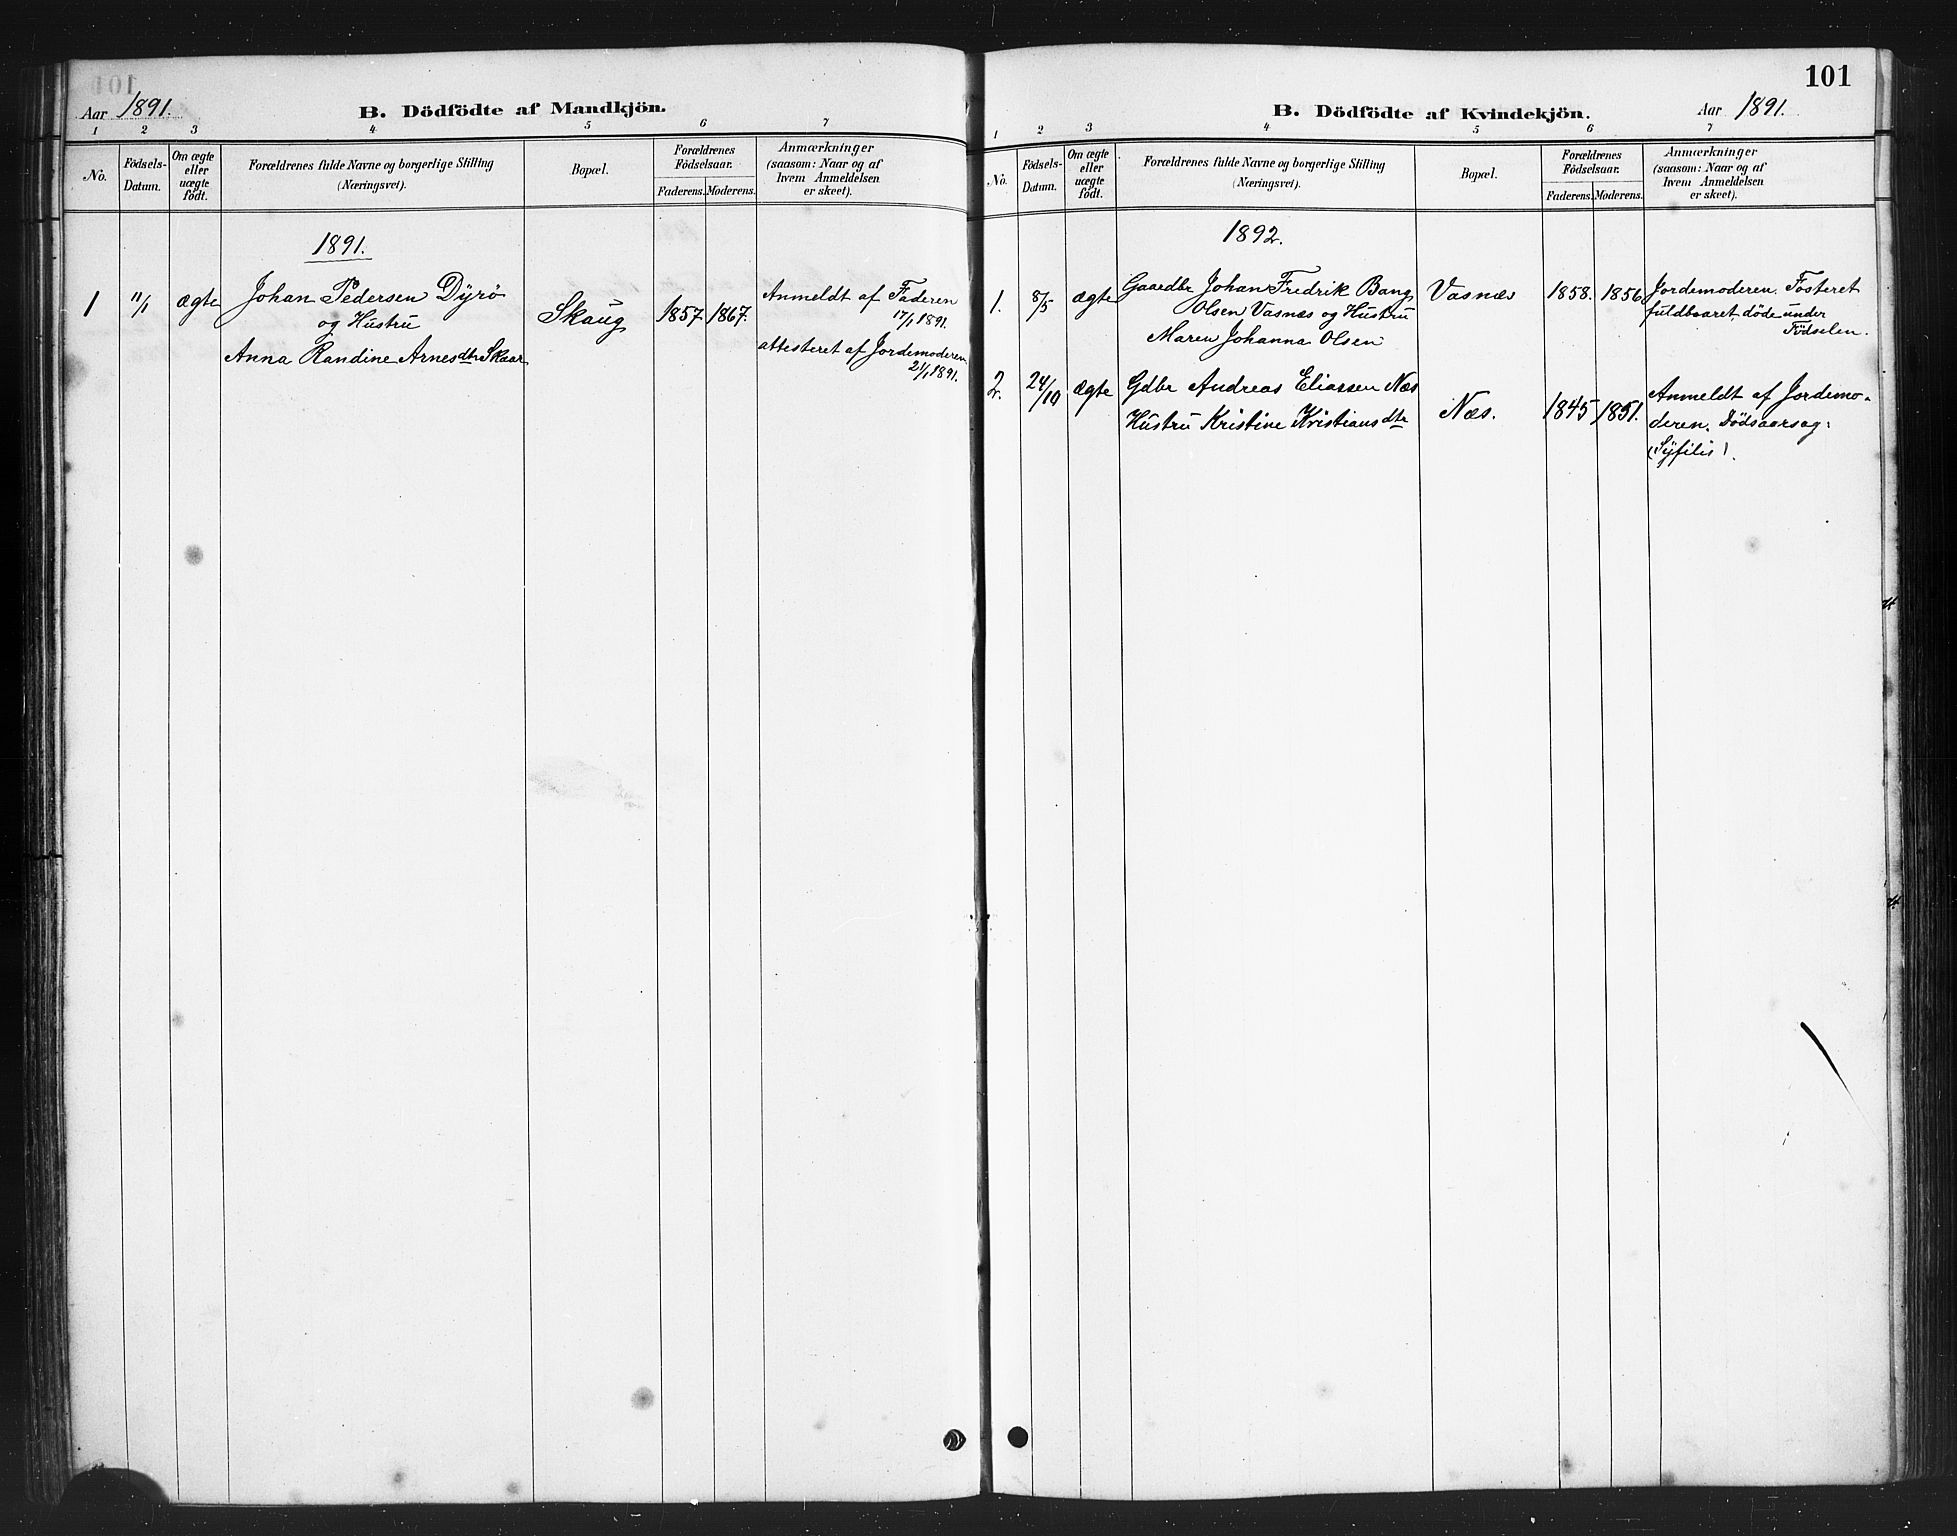 Aar 1891.
B. Dödfödte af Mandkjön.
1 2 3 4 5 6 7
No.
Födsels-
Datum.
Om ægte
eller
uægte
födt.
Forældrenes fulde Navne og borgerlige Stilling
(Næringsvei).
Bopæl.
Forældrenes
Födselsaar.
Faderens. Moderens.
Anmærkninger
(saasom: Naar og af
hvem Anmeldelsen
er skeet).
1891.
1 11/1 ægte Johan Pedersen Dyrö
og Hustru
Anna Randine Arnesdtr Skaar
Skaug 1857 1867.
Anmeldt af Faderen
17/1 1891.
attesteret af Jordemoderen
21/1 1891.
101
B. Dödfödte af Kvindekjön.
Aar 1891.
1 2 3 4 5 6 7
No.
Födsels-
Datum.
Om ægte
eller
uægte
födt.
Forældrenes fulde Navne og borgerlige Stilling
(Næringsvei).
Bopæl.
Forældrenes
Födselsaar.
Faderens. Moderens.
Anmærkninger
(saasom: Naar og af
hvem Anmeldelsen
er skeet).
1892.
1. 8/5 ægte Gaardbr Johan Fredrik Bang
Olsen Vasnæs og Hustru
Maren Johanna Olsen
Vasnæs 1858. 1856
Jordemoderen. Fosteret
fuldbaaret, döde under
Födselen.
2. 24/10 ægte Gdbr Andreas Eliassen Næs
Hustru Kristine Kristiansdtr
Næs. 1845 1851.
Anmeldt af Jordemo-
deren. Dödsaarsag:
(Syfilis).